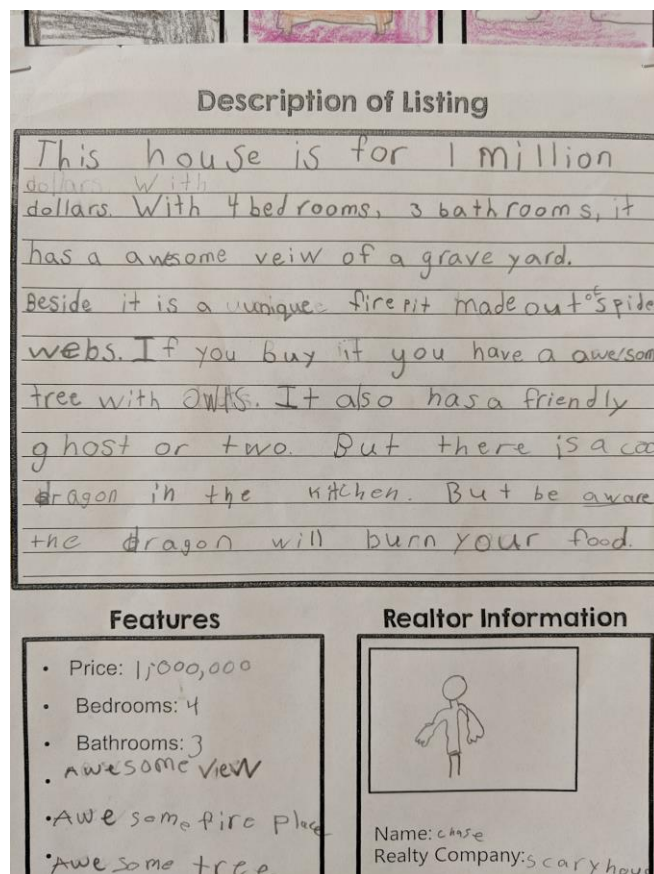 Description of Listing
This house is for 1 million
dollars With
dollars. With 4 bedrooms, 3 bathrooms, it
has a awesome veiw of a grave yard.
Beside it is a uunique firepit made out of spide
webs. If you buy it you have a awesom
tree with owls. It also has a friendly
ghost or two. But there is a coo
dragon in the kitchen. But be aware
the dragon will burn your food.
Features
• Price: 1,000,000
• Bedrooms: 4
• Bathrooms: 3
• Awesome view
• Awesome fire place
• Awesome tree
Realtor Information
Name: chase
Realty Company: scaryhou